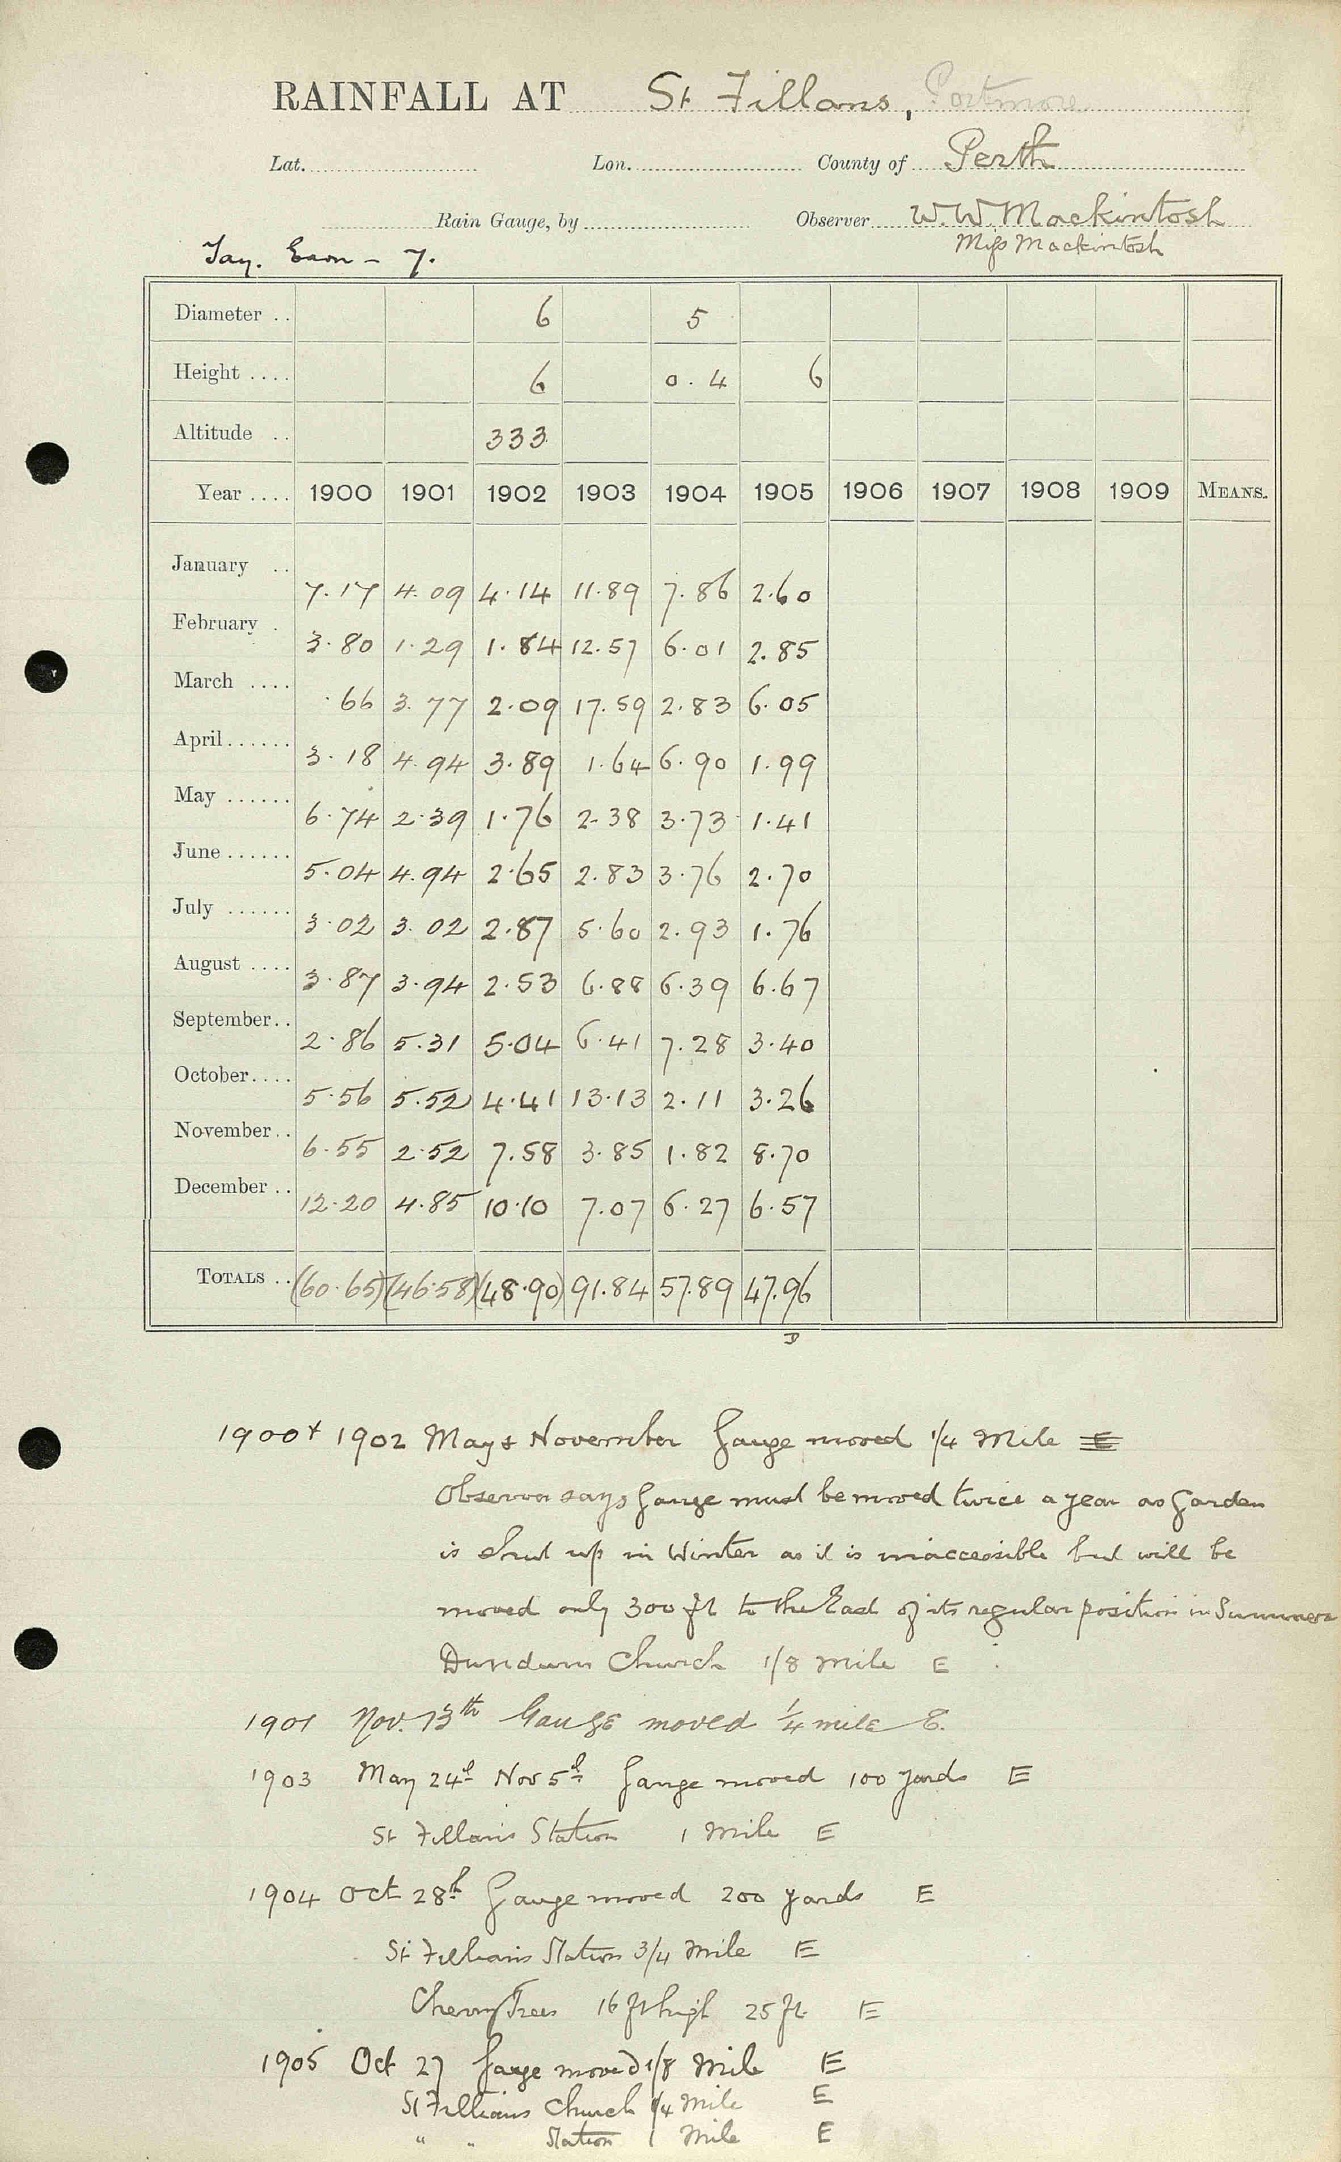 RAINFALL AT St Fillans, Portmore
Lat. Lon. County of Perth
Rain Gauge, by Observer W.W. Mackintosh
Miss Mackintosh
Tay. Earn - 7.
Diameter .. 6 5
Height .... 6 0.4 6
Altitude .. 333
Year .... 1900 1901 1902 1903 1904 1905 1906 1907 1908 1909 MEANS.
January .. 7.17 4.09 4.14 11.89 7.86 2.60
February . 3.80 1.29 1.84 12.57 6.01 2.85
March .... .66 3.77 2.09 17.59 2.83 6.05
April...... 3.18 4.94 3.89 1.64 6.90 1.99
May ...... 6.74 2.39 1.76 2.38 3.73 1.41
June ...... 5.04 4.94 2.65 2.83 3.76 2.70
July ...... 3.02 3.02 2.87 5.60 2.93 1.76
August .... 3.87 3.94 2.53 6.88 6.39 6.67
September.. 2.86 5.31 5.04 6.41 7.28 3.40
October.... 5.56 5.52 4.41 13.13 2.11 3.26
November.. 6.55 2.52 7.58 3.85 1.82 8.70
December .. 12.20 4.85 10.10 7.07 6.27 6.57
TOTALS .. (60.65) (46.58) (48.90) 91.84 57.89 47.96
D
1900 + 1902 May + November Gauge moved 1/4 Mile E
Observer says Gauge must be moved twice a year as Garden
is shut up in Winter as it is inaccessible but will be
moved only 300 ft to the East of its regular position in Summer
Dundurn Church 1/8 Mile E
1901 Nov. 13th Gauge moved 1/4 mile E.
1903 May 24th Nov 5th Gauge moved 100 yards E
St Fillans Station 1 Mile E
1904 Oct 28th Gauge moved 200 yards E
St Fillans Station 3/4 Mile E
Cherry Trees 16 ft high 25 ft. E
1905 Oct 27 Gauge moved 1/8 Mile E
St Fillians Church 1/4 Mile E
" " Station 1 Mile E